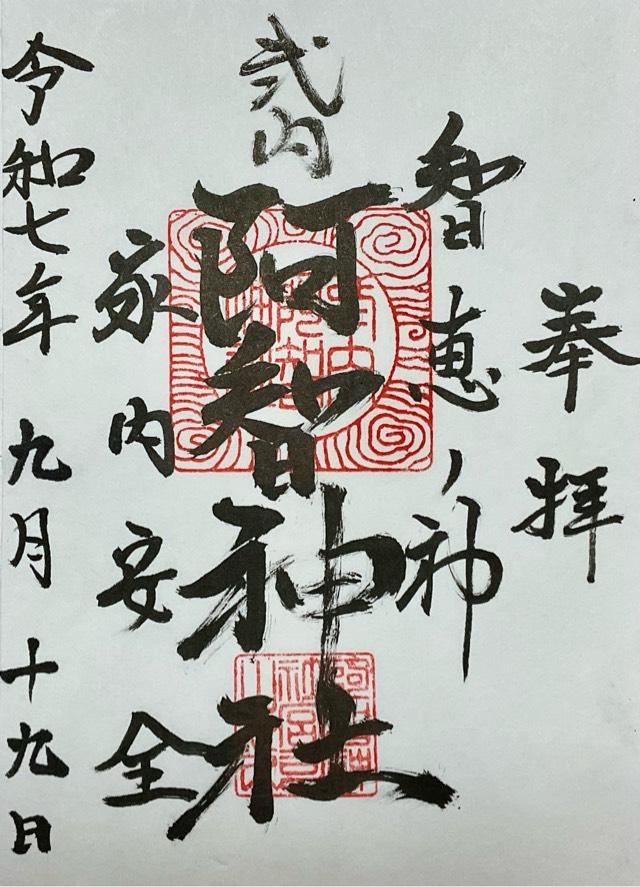 奉拝
智恵ノ神
弐内
阿智神社
家内安全
令和七年九月十九日